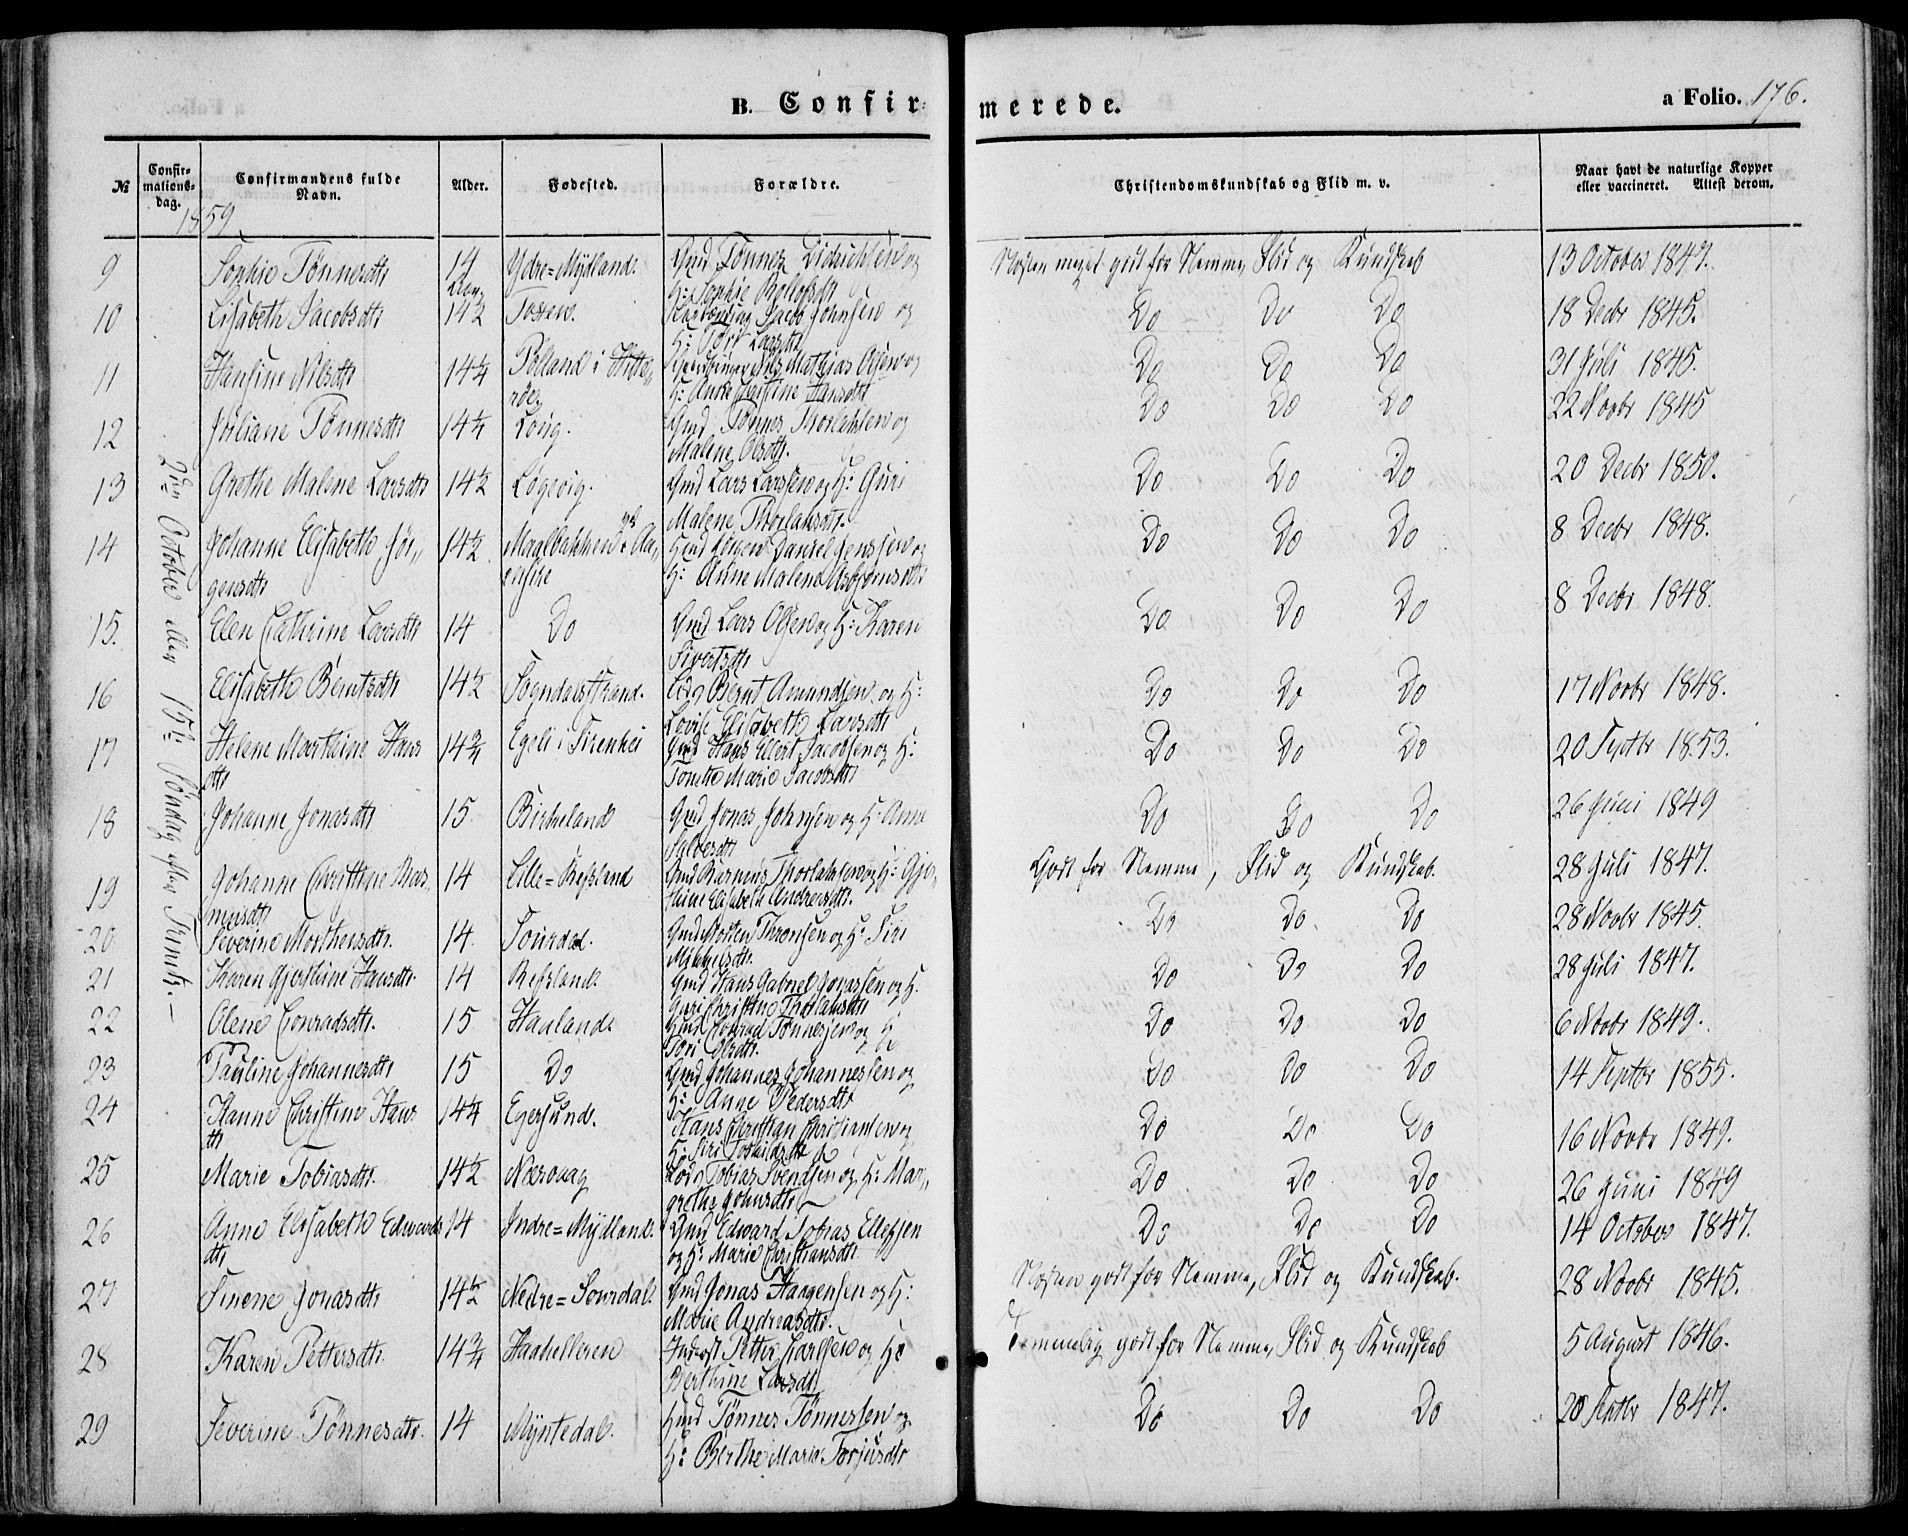 B. Confir-
merede.
a Folio. 176.
№
Confir-
mations-
dag.
Confirmandens fulde
Navn.
Alder.
Fødested.
Forældre.
Christendomskundskab og Flid m. v.
Naar havt de naturlige Kopper
eller vaccineret. Attest derom.
1859
2den October eller 15de Søndag efter Trinit. –
9 Sophie Tønnesdtr 14 Ydre=Mydland. Gmd Tønnes Didrichsen og
H: Sophie
Næsten meget godt for Nemme, Flid og Kundskab 13 October 1847.
10 Lisabeth Jacobsdtr 14½ Jacob Johnsen og
H: Larsdtr
Do Do Do 18 Decbr 1845.
11 Hansine Nilsdtr 14¼ i Hitte-
Nils Mathias Olsen og
H: Anne Hansdtr
Do Do Do 31 Juli 1845.
12 Juliane Tønnesdtr 14¼ Løvig. Gmd Tønnes Thorlaksen og
Malene Olsdtr.
Do Do Do 22 Novbr 1845
13 Grethe Malene Larsdtr 14½ Løgevig. Gmd Lars Larssen og H: Guri
Malene Thorlaksdtr.
Do Do Do 20 Decbr 1850.
14 Johanne Elisabeth Jør-
gensdtr 14½ Jørgen Daniel Jenssen og
H: Anne Malene Asbjørnsdtr
Do Do Do 8 Decbr 1848.
15. Elen Cathrine Larsdtr 14 Do Gmd Lars Olsen og H: Karen
Sivertsdtr
Do Do Do 8 Decbr 1848.
16 Elisabeth Berntsdtr 14½ Sogndalsstrand. Bernt Amundsen og H:
Lovise Elisabeth Larsdtr
Do Do Do 17 Novbr 1848.
17 Helene Marthine Hans
dtr 14¾ Egeli i Sirenhei Gmd Hans Ellert Jacobsen og H:
Tonette Marie Jacobsdtr
Do Do Do 20 Septbr 1853.
18 Johanne Jonasdtr 15. Birkeland Gmd Jonas Johnsen og H: Anne
Salvesdtr
Do Do Do 26 Juni 1849
19 Johanne Christine Ras-
musdtr 14 Lille=Refsland Gmd Rasmus Thorlaksen og H: Gjer-
thine Elisabeth Andreasdtr.
Godt for Nemme, Flid og Kundskab. 28 Juli 1847.
20 Severine Morthensdtr. 14. Sourdal. Gmd Morten Thronsen og H: Siri
Mikkelsdtr.
Do Do Do 28 Novbr 1845.
21 Karen Gjerthine Hansdtr. 14 Refsland. Gmd Hans Gabriel Jonassen og H.
Guri Christine Thorlaksdtr
Do Do Do 28 Juli 1847.
22 Olene Conradsdtr. 15 Hauland. Conrad Tønnesen og H:
Tori Olsdtr.
Do Do Do 6 Novbr 1849.
23 Pauline Johannesdtr 15 Do Gmd Johannes Johannessen og
H: Anne Pedersdtr
Do Do Do 14 Septbr 1855.
24 Hanne Christine Hans-
dtr 14¼ Egersund. Hans Christian Christiansen og
H: Siri
Do Do Do 16 Novbr 1849.
25 Marie Tobiasdtr. 14½ Næsvaag Tobias Svendsen og H: Mar-
grethe Johnsdtr
Do Do Do 26 Juni 1849
26 Anne Elisabeth Edwards
dtr 14 Indre=Mydland. Gmd Edward Tobias Ellefsen
og H: Marie Christiansdtr
Do Do Do 14 October 1847.
27 Sinene Jonasdtr 14½ Nedre=Sourdal. Gmd Jonas Haagensen og H:
Marie Andreasdtr.
Næsten godt for Nemme, Flid og Kundskab. 28 Novbr 1845.
28 Karen Pettersdtr. 14¾ Haahelleren Inderst Petter Carlsen og H:
Berthine Larsdtr
Temmelig godt for Nemme, Flid og Kundskab 5 August 1846.
29 Severine Tønnesdtr. 14 Myntedal. Tønnes Tønnessen og
H: Berthe Marie Torjusdtr
Do Do Do 20 Septbr 1847.